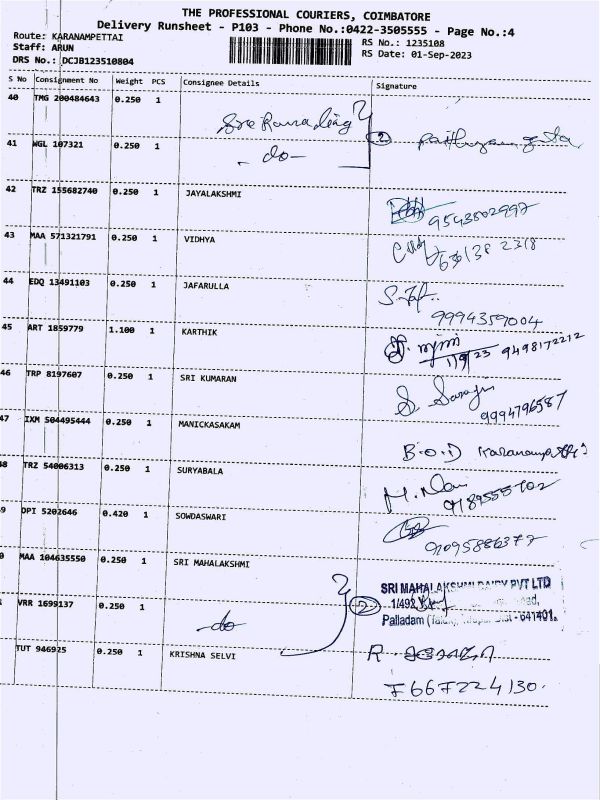 THE PROFESSIONAL COURIERS, COIMBATORE
Delivery Runsheet - P103 - Phone No.:0422-3505555 - Page No.:4
Route: KARANAMPETTAI
Staff: ARUN
DRS No.: DCJB123510804
RS No.: 1235108
RS Date: 01-Sep-2023
S No Consignment No Weight PCS Consignee Details Signature
40 TMG 200484643 0.250 1
41 WGL 107321 0.250 1 - do -
2
42 TRZ 155682740 0.250 1 JAYALAKSHMI
9543502997
43 MAA 571321791 0.250 1 VIDHYA
44 EDQ 13491103 0.250 1 JAFARULLA
9994359004
45 ART 1859779 1.100 1 KARTHIK
1/9/23 9498172212
46 TRP 8197607 0.250 1 SRI KUMARAN
9994796587
47 IXM 504495444 0.250 1 MANICKASAKAM
B.O.D
48 TRZ 54006313 0.250 1 SURYABALA
9 OPI 5202646 0.420 1 SOWDASWARI
9095886377
0 MAA 104635550 0.250 1 SRI MAHALAKSHMI
SRI MAHALAKSHMI DAIRY PVT LTD
1/492
Palladam 641401.
VRR 1699137 0.250 1 - do
2
TUT 946925 0.250 1 KRISHNA SELVI
7667224130.